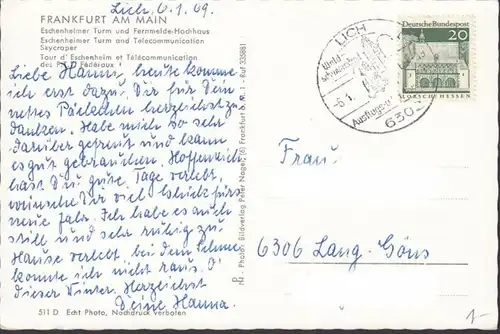 Lich, 6.1.69.
FRANKFURT AM MAIN
Eschenheimer Turm und Fernmelde-Hochhaus
Eschenheimer Turm and Telecommunication
Skycraper
Tour d'Eschenheim et Télécommunication
des P Fédéraux
Liebe Hanni, heute komme
ich erst dazu, Dir für Dein
nettes Päckchen herzlichst zu
danken. Habe mich so sehr
darüber gefreut und kann
es gut gebrauchen. Hoffentlich
hast Du gute Tage verlebt,
wünsche Dir viel Glück fürs
neue Jahr. Ich habe es auch
still und sehr ruhig zu
Hause verlebt, bei dem Schnee
konnte ich nicht raus. O'
dieser Winter. Herzlichst
Deine Hanna.
511 D Echt Photo, Nachdruck verboten
Photo: Bildverlag Peter Nagel, (6) Frankfurt M. 1 - Ruf 333881
LICH
-6.1.
6302
Deutsche Bundespost
20
LORSCH/HESSEN
Frau
6306 Lang-Göns
1-